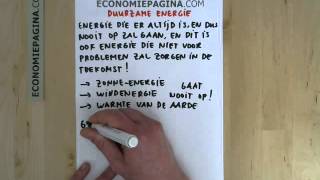 ECONOMIEPAGINA.COM
ECONOMIEPAGINA.COM
DUURZAME ENERGIE
ENERGIE DIE ER ALTIJD IS, EN DUS
NOOIT OP ZAL GAAN, EN DIT IS
OOK ENERGIE DIE NIET VOOR
PROBLEMEN ZAL ZORGEN IN DE
TOEKOMST!
→ ZONNE-ENERGIE GAAT
→ WINDENERGIE NOOIT OP!
→ WARMTE VAN DE AARDE